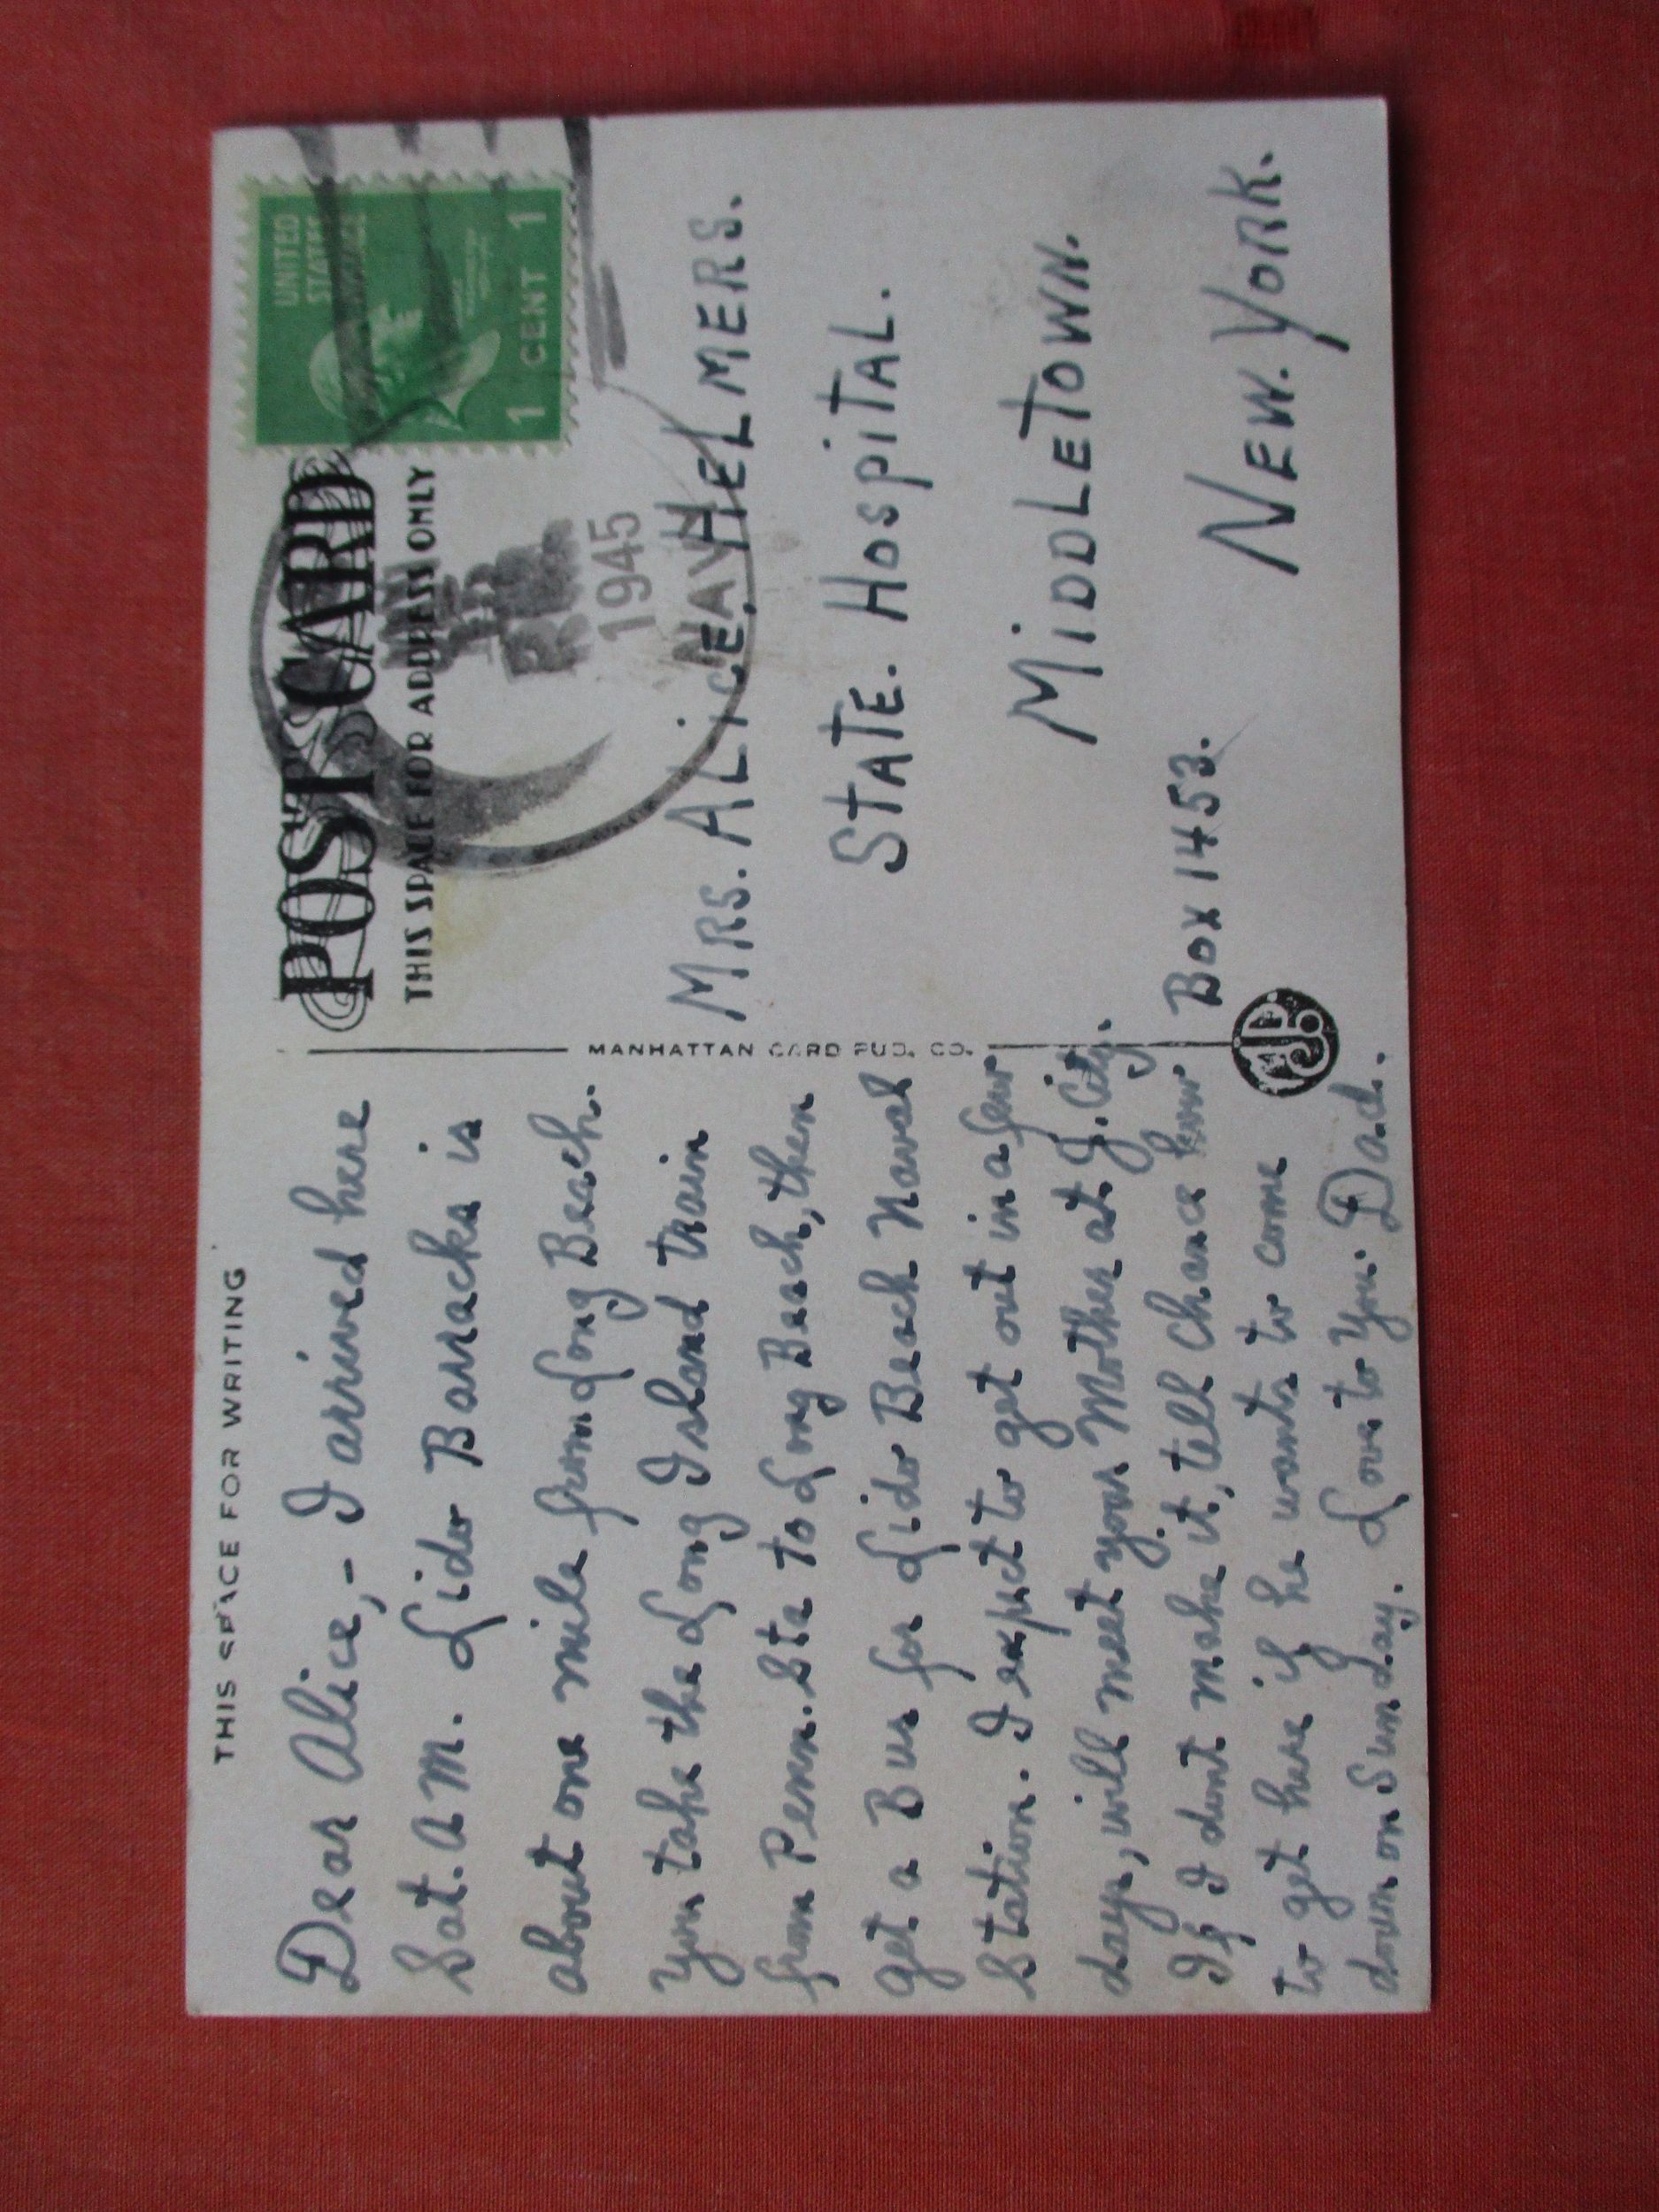 THIS SPACE FOR WRITING
Dear Alice,- I arrived here
Sat. A M. Lido Barracks is
about one mile from Long Beach.
You take the Long Island train
from Penn. Sta to Long Beach, then
get a Bus for Lido Beach Naval
Station. I expect to get out in a few
days, will meet your Mother at J. City.
If I dont make it, tell Chance how
to get here if he wants to come
down on Sunday. Love to You. Dad.
MANHATTAN CARD PUB. CO.
POST CARD
THIS SPACE FOR ADDRESS ONLY
UNITED
STATES
POSTAGE
1 CENT 1
1945
NAVY
MRS. ALICE. HELMERS.
STATE. HOSPITAL.
MIDDLETOWN.
BOX 1453.
NEW. YORK.